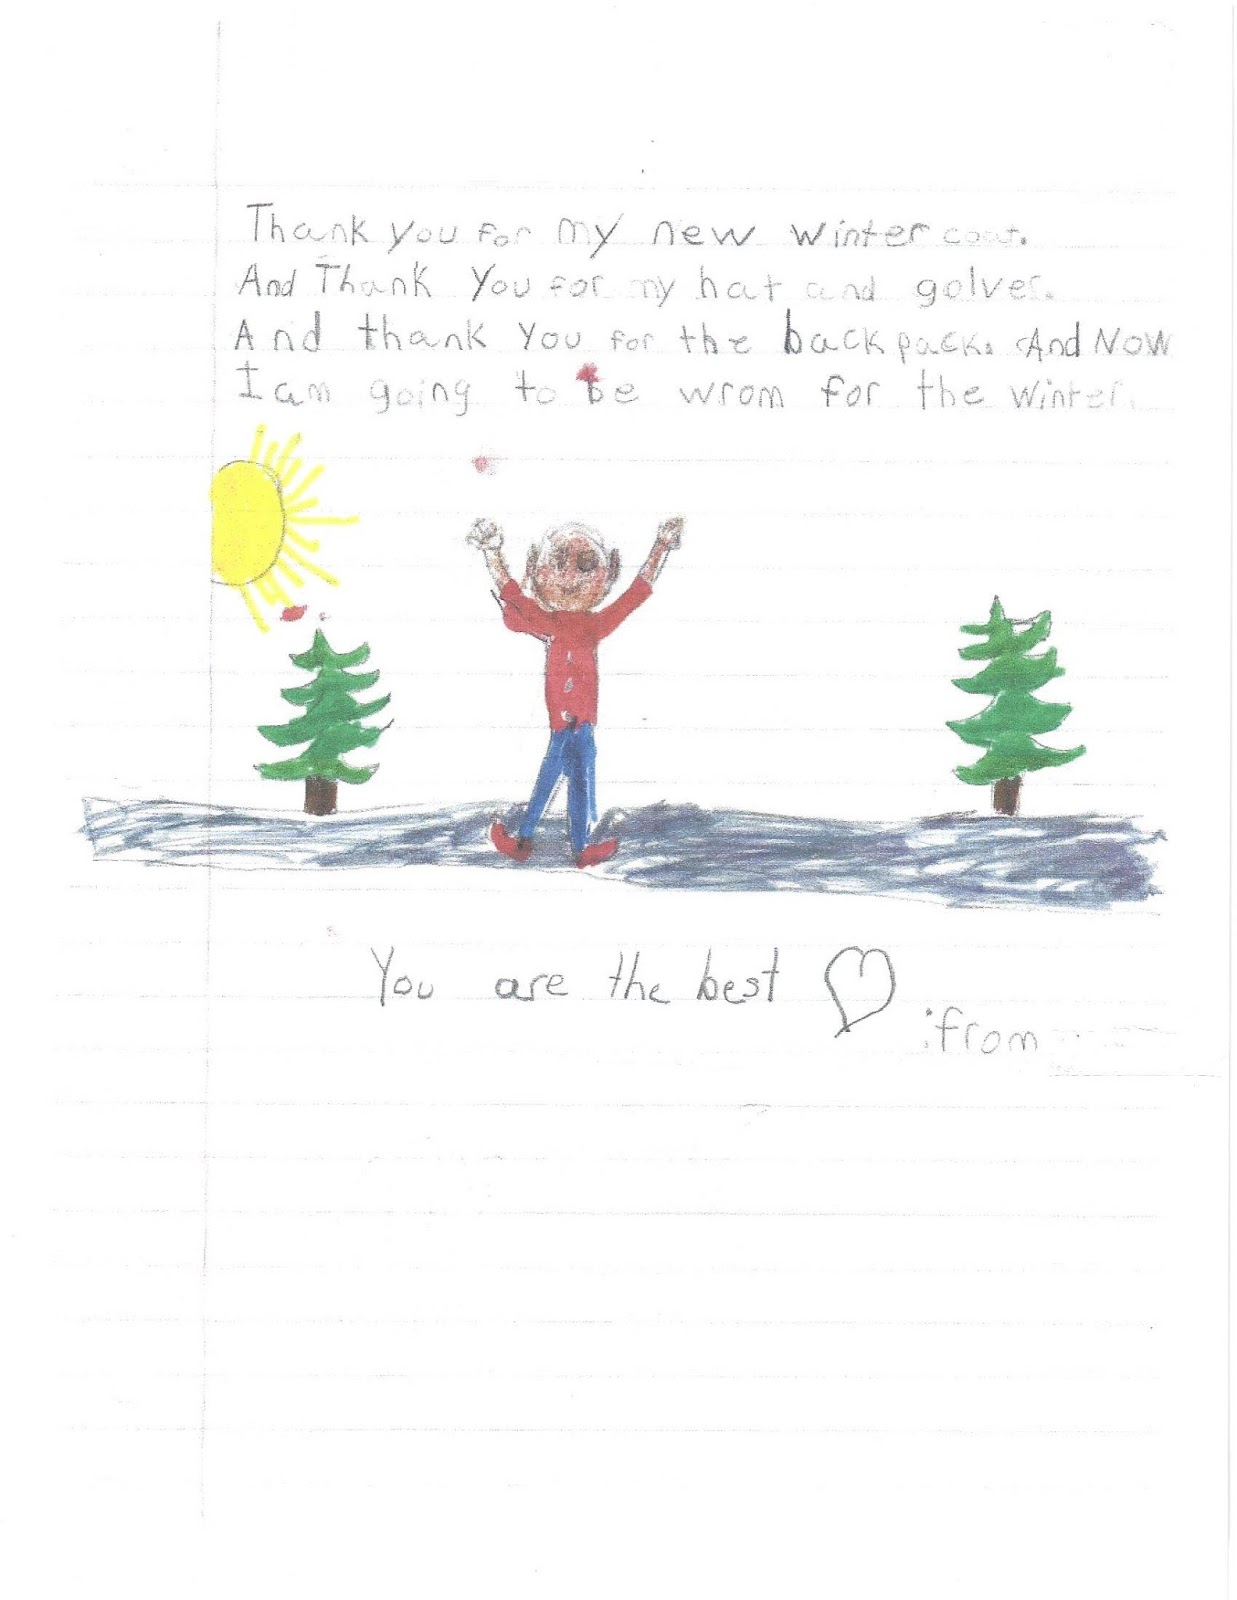 Thank you for my new winter coat.
And Thank You for my hat and golves.
And thank you for the backpack. And Now
I am going to be wrom for the winter.
You are the best
:from